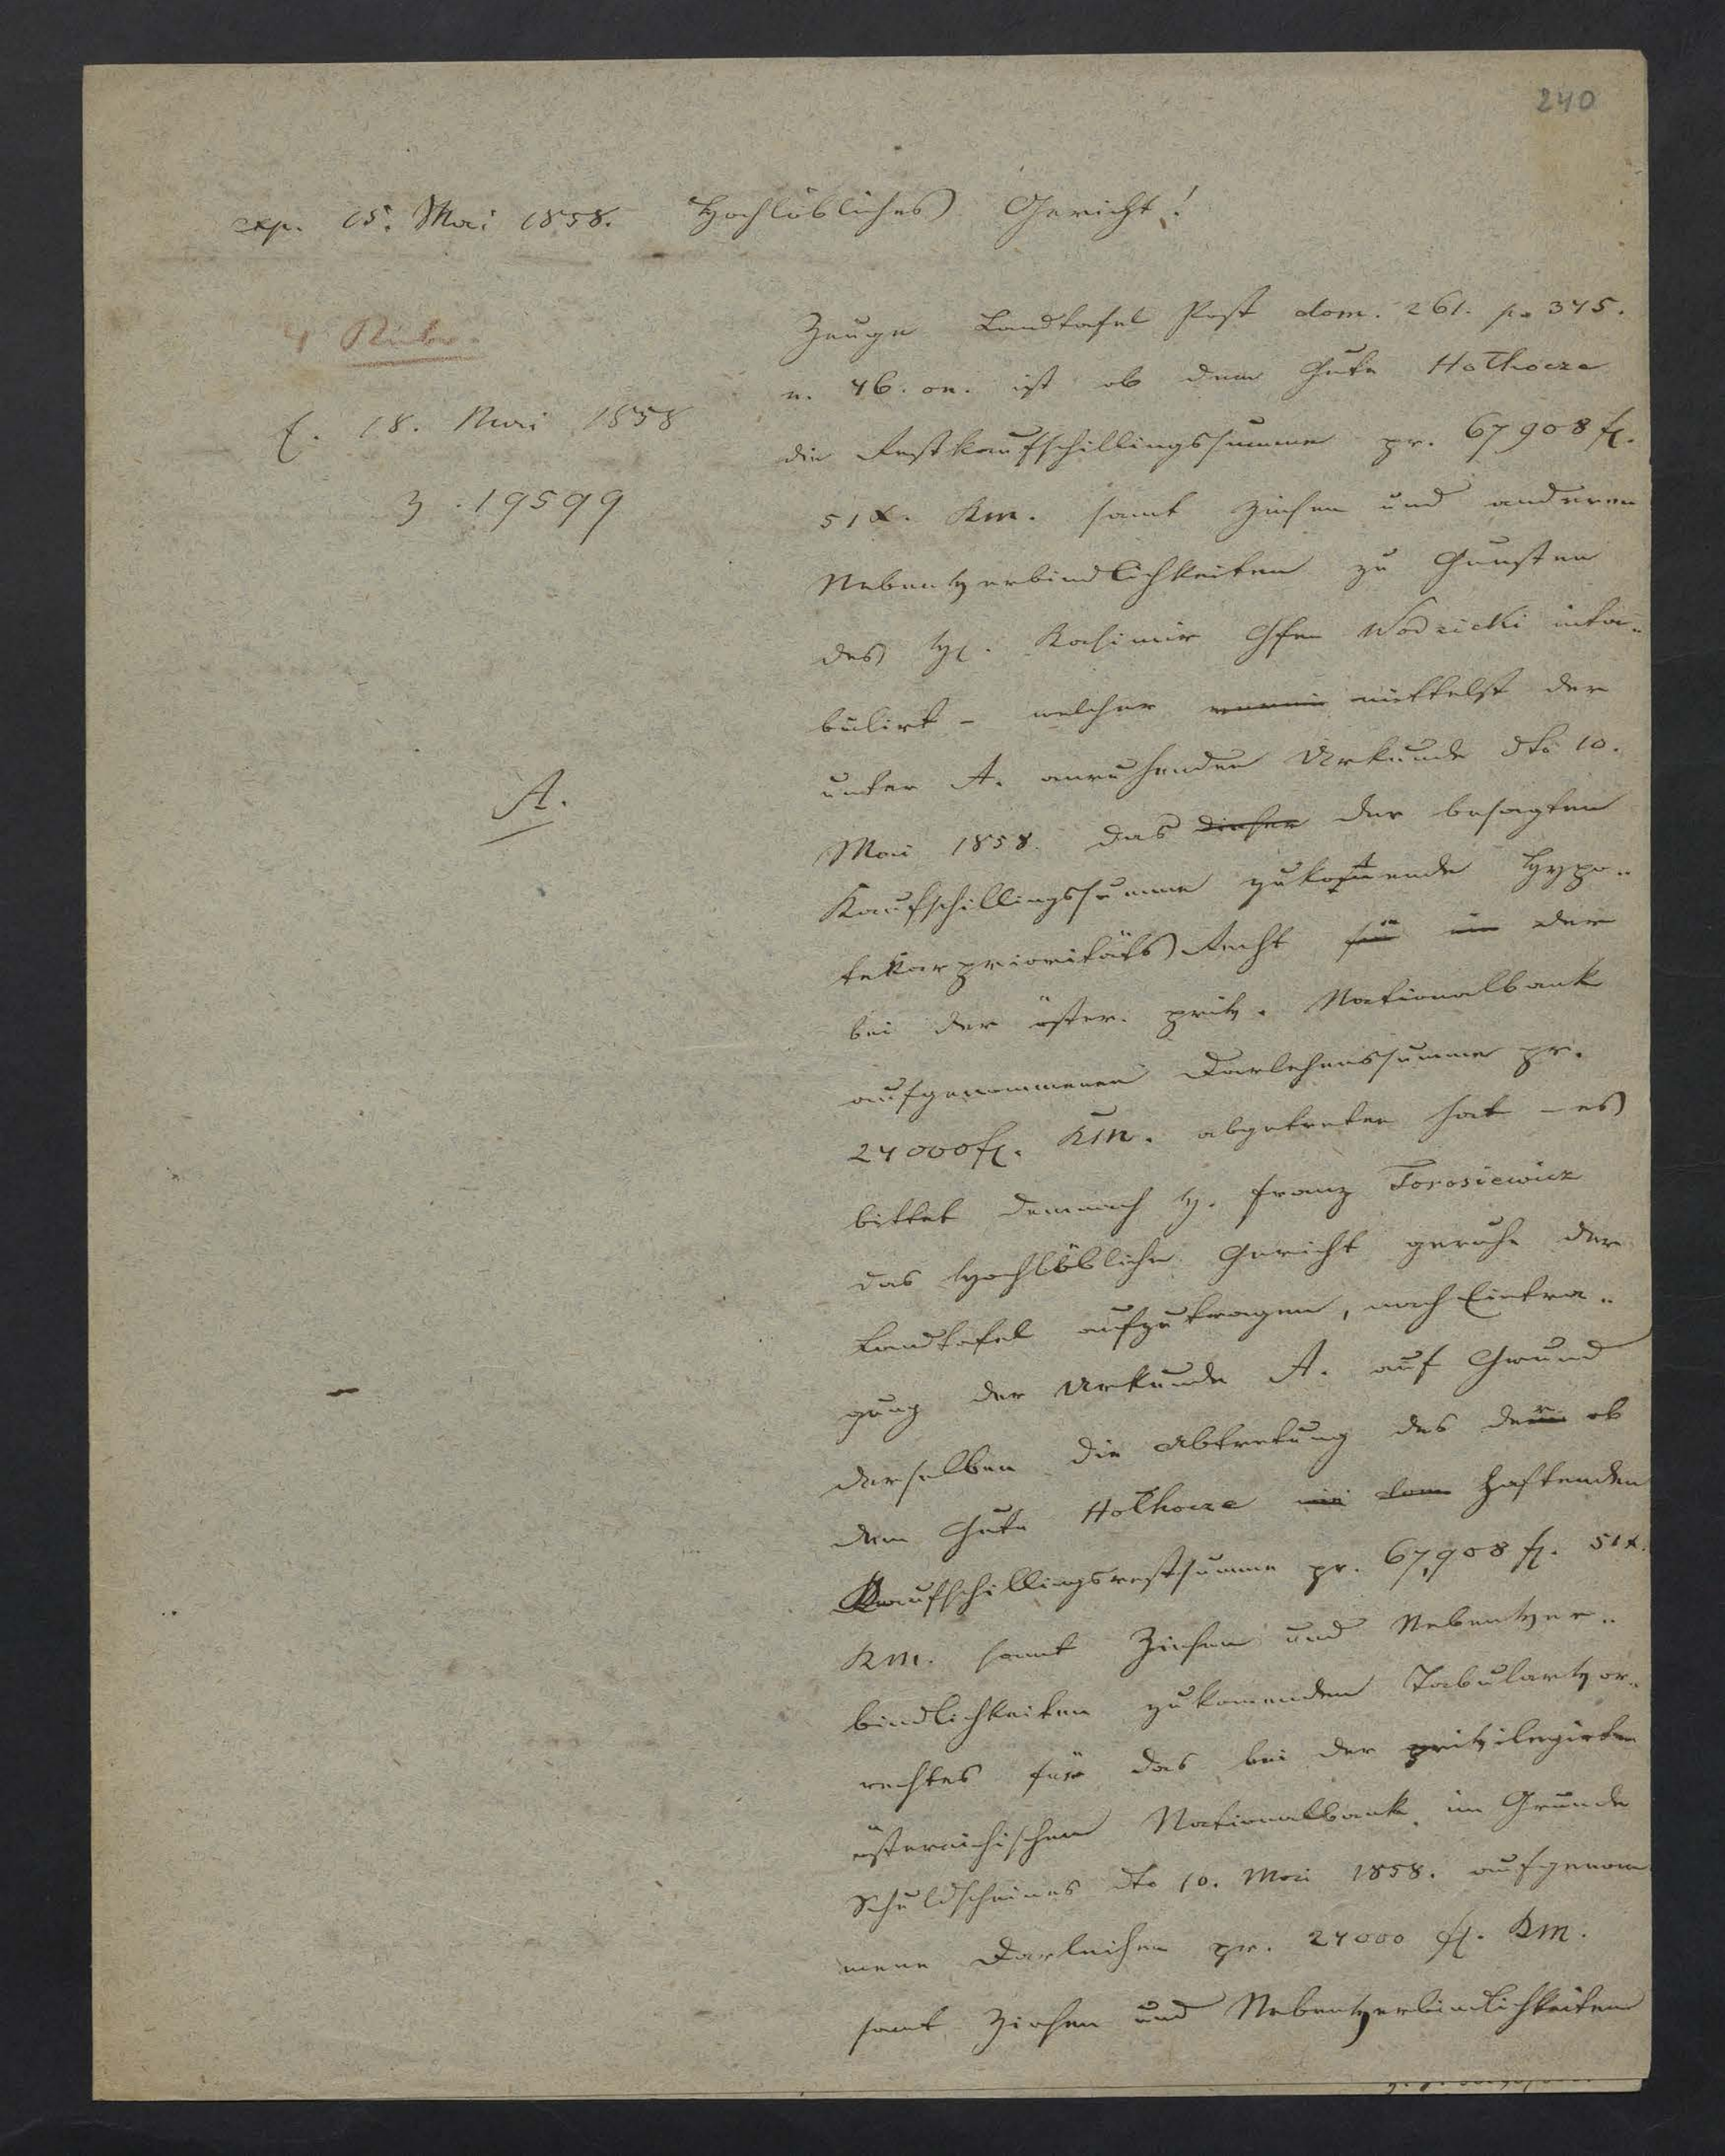 240
exp. 15. Mai 1858. Hochlöbliches Gericht!
4 Rubr.
E. 18. Mai 1858
Z. 19599
A.
Zeuge Landtafel Post dom. 261. p. 375.
n. 46. on. ist ob dem Gute Hołhocze
die Restkaufschillingssumme pr. 67908 fl.
51 x. KM. samt Zinsen und anderen
Nebenverbindlichkeiten zu Gunsten
des H. Kasimir Gfen Wodzicki inta-
bulirt - welcher mittelst der
unter A. anruhenden Urkunde dto 10.
Mai 1858. das dieser der besagten
Kaufschillingssumme zukommende Hypo-
tekarprioritäts Recht der
bei der öster. priv. Nationalbank
aufgenommenen Darlehenssumme pr.
24000 fl. KM. abgetreten hat - es
bittet demnach H. Franz Torosiewicz
das Hochlöbliche Gericht geruhe der
Landtafel aufzutragen, nach Eintra-
gung der Urkunde A. auf Grund
derselben die Abtretung des der ob
dem Gute Hołhocze haftenden
Kaufschillingsrestsumme pr. 67,908 fl. 51 x.
KM. samt Zinsen und Nebenver-
bindlichkeiten zukomenden Tabularvor-
rechtes für das bei der privilegirten
österreichischen Nationalbank im Grunde
Schuldscheines dto 10. Mai 1858. aufgenom
mene Darleihen pr. 24000 fl. KM.
samt Zinsen und Nebenverbindlichkeiten